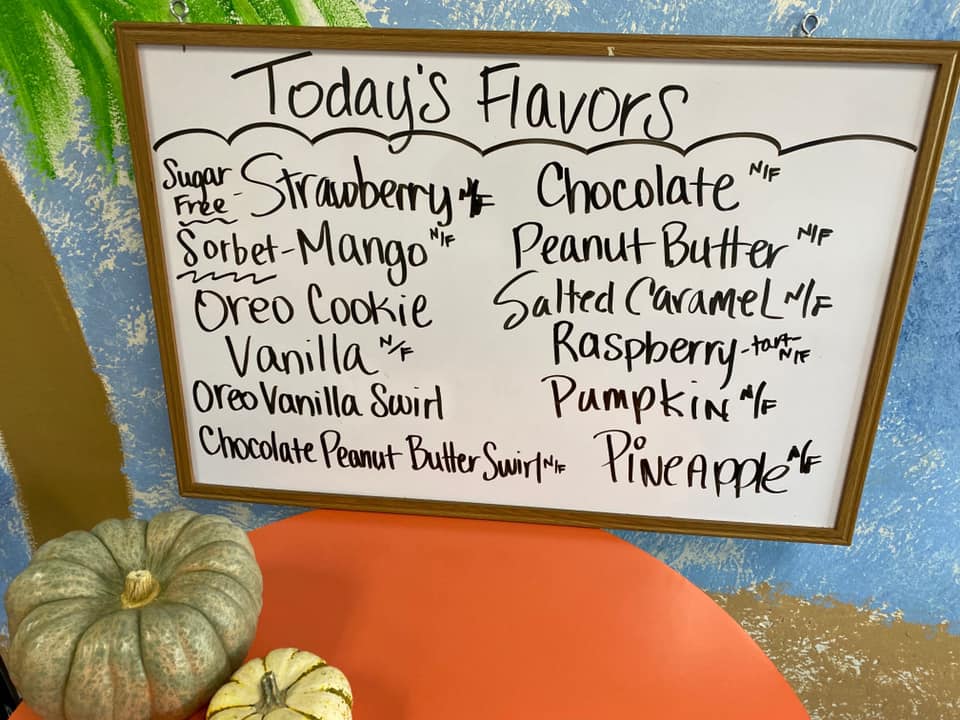 Today's Flavors
Sugar Free - Strawberry N/F
Sorbet - Mango N/F
Oreo Cookie
Vanilla N/F
Oreo Vanilla Swirl
Chocolate Peanut Butter Swirl N/F
Chocolate N/F
Peanut Butter N/F
Salted Caramel N/F
Raspberry - tart N/F
Pumpkin N/F
Pineapple N/F